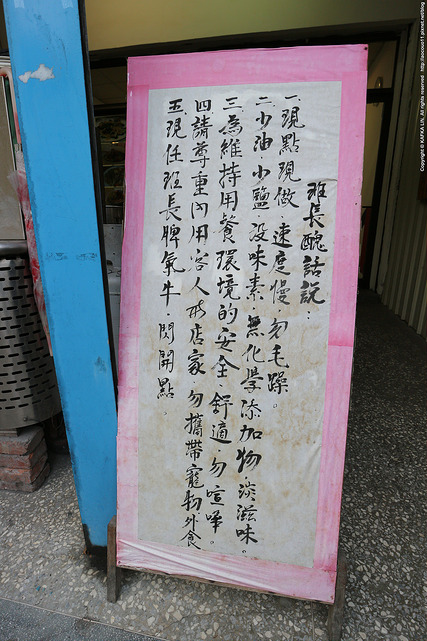 班長醜話說：
一.現點現做.速度慢.勿毛躁。
二.少油.少鹽.沒味素.無化學添加物.淡滋味。
三.為維持用餐環境的安全.舒適.勿喧嘩。
四.請尊重內用客人或店家.勿攜帶寵物外食
五.現任班長脾氣牛.閃開點。